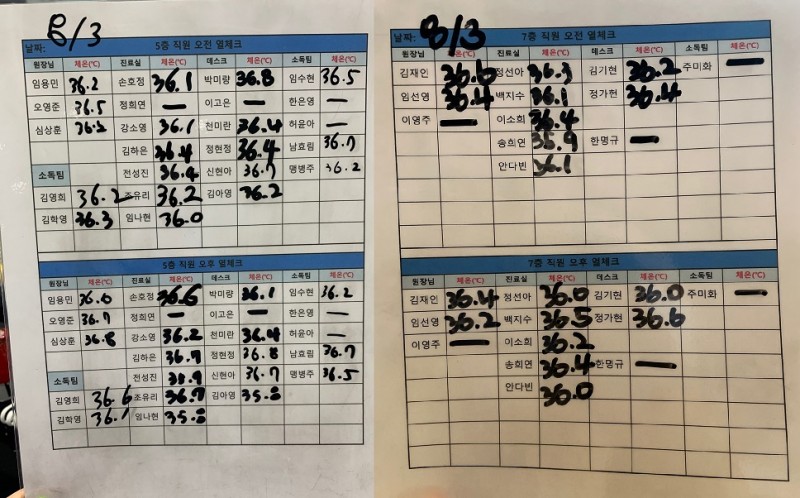 8/3
날짜:
5층 직원 오전 열체크
원장님 체온(℃) 진료실 체온(℃) 데스크 체온(℃) 소독팀 체온(℃)
임용민 36.2 손호정 36.1 박미량 36.8 임수현 36.5
오영준 36.5 정희연 — 이고은 — 한은영 —
심상훈 강소영 36.1 천미란 36.4 허윤아 —
김하은 36.4 정현정 36.4 남효림 36.7
소독팀 전성진 36.4 신현아 36.7 맹병주 36.2
김영희 36.2 조유리 36.2 김아영 36.2
김학영 36.3 임나현 36.0
5층 직원 오후 열체크
원장님 체온(℃) 진료실 체온(℃) 데스크 체온(℃) 소독팀 체온(℃)
임용민 36.6 손호정 36.6 박미량 36.1 임수현 36.2
오영준 36.7 정희연 — 이고은 — 한은영 —
심상훈 36.8 강소영 36.2 천미란 36.4 허윤아 —
김하은 36.7 정현정 36.8 남효림 36.7
소독팀 전성진 신현아 36.7 맹병주 36.5
김영희 36.6 조유리 36.7 김아영 35.8
김학영 36.1 임나현 35.8
8/3
날짜:
7층 직원 오전 열체크
원장님 체온(℃) 진료실 체온(℃) 데스크 체온(℃) 소독팀 체온(℃)
김재인 36.6 정선아 36.3 김기현 36.2 주미화 —
임선영 36.4 백지수 36.1 정가현 36.4
이영주 — 이소희 36.4
송희연 35.9 한명규 —
안다빈 36.1
7층 직원 오후 열체크
원장님 체온(℃) 진료실 체온(℃) 데스크 체온(℃) 소독팀 체온(℃)
김재인 36.4 정선아 36.0 김기현 36.0 주미화 —
임선영 36.2 백지수 36.5 정가현 36.6
이영주 — 이소희 36.2
송희연 36.4 한명규 —
안다빈 36.0